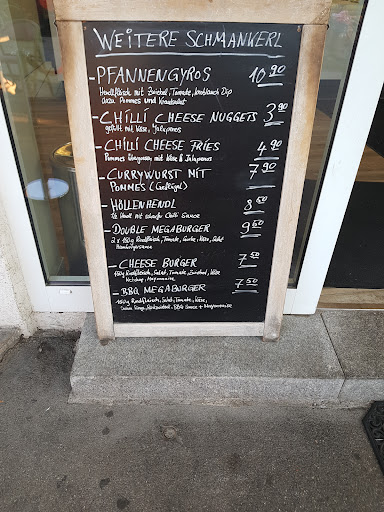 WEITERE SCHMANKERL
- PFANNENGYROS 10 90
Hendlfleisch mit Zwiebel, Tomate, Knoblauch Dip
dazu Pommes und Krautsalat
- CHILLI CHEESE NUGGETS 3 90
gefüllt mit Käse, Jalapenos
- CHILLI CHEESE FRIES 4 90
Pommes überzogen mit Käse & Jalapenos
- CURRYWURST MIT 7 90
POMMES (Geflügel)
- HÖLLENHENDL 8 60
1/2 Hendl mit scharfer Chilli Sauce
- DOUBLE MEGABURGER 9 50
2 x 150g Rindfleisch, Tomate, Gurke, Käse, Salat
Hamburgersauce
- CHEESE BURGER 7 50
150g Rindfleisch, Salat, Tomate, Zwiebel, Käse
Ketchup, Mayonnaise
- BBQ MEGABURGER 7 50
150g Rindfleisch, Salat, Tomate, Käse,
BBQ Sauce + Mayonnaise